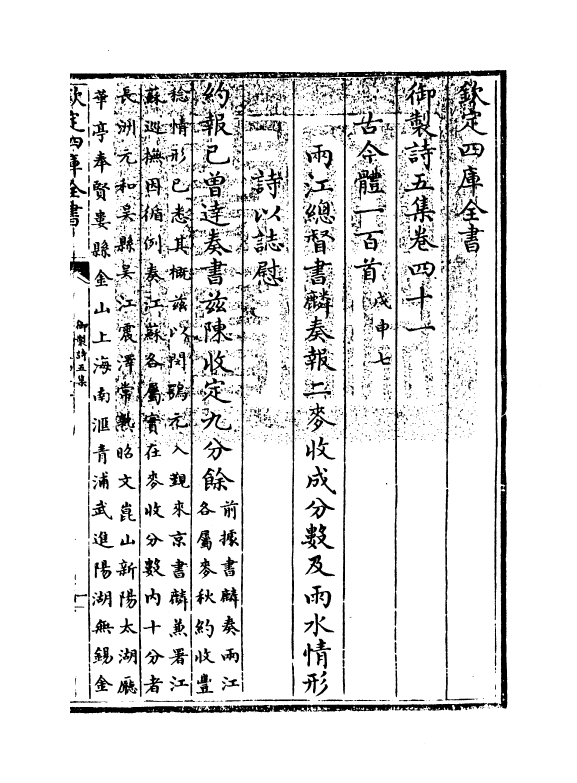 欽定四庫全書
御製詩五集卷四十一
古今體一百首戊申七
兩江總督書麟奏報二麥收成分數及雨水情形
詩以誌慰
約報已曾達奏書茲陳收定九分餘前據書麟奏兩江
各屬麥秋約收豐
稔情形已悉其概茲以閔鶚元入覲來京書麟兼署江
蘇巡撫因循例奏江蘇各屬實在麥收分數內十分者
長洲元和吳縣吳江震澤常熟昭文崑山新陽太湖廳
華亭奉賢婁縣金山上海南滙青浦武進陽湖無錫金
欽定四庫全書
御製詩五集
一